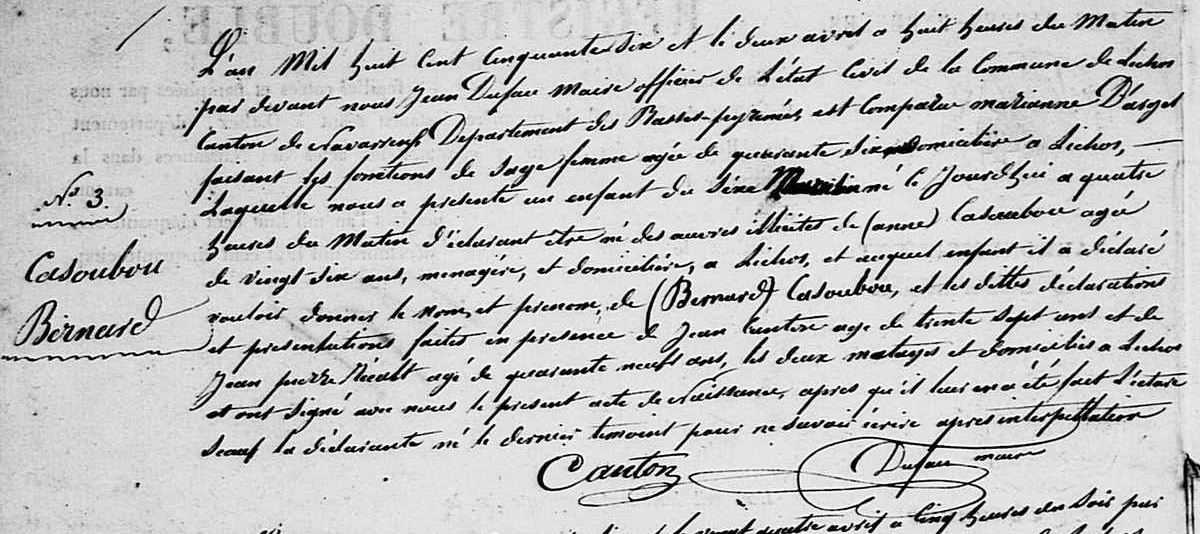 REGISTRE DOUBLE,
L'an Mil huit Cent Cinquante Six et le deux avril a huit heures du Matin
par devant nous Jean Dufau Maire officier de L'état Civil de la Commune de Lichos
Canton de Navarrenx Departement des Basses-pyrenées, est Comparue marianne D'arget
faisant les fonctions de Sage femme agée de quarante Six domiciliée a Lichos,
Laquelle nous a présenté un enfant du Séxe né le Jourdhui a quatre
N.o 3.
heures du Matin d'éclarant être né des œuvres illicites de (anne) Casoubou agée
Casoubou
de vingt Six ans, menagére, et domiciliére, a Lichos, et auquel enfant il a déclaré
vouloir donner le nom, et prénom, de (Bernard) Casoubou, et les dittes déclarations
Bernard
et présentations faites en présence de Jean Canton age de trente Sept ans et de
Jean pierre agé de quarante neuf ans, les deux et domiciliés a Lichos
et ont Signé avec nous le présent acte de Naissance, apres qu'il leur en a été fait Lecture
Sauf la déclarante né le dernier temoint pour ne Savoir écrire apres interpellation
Canton Dufau maire
quatre avril a Cinq heures du Soir par